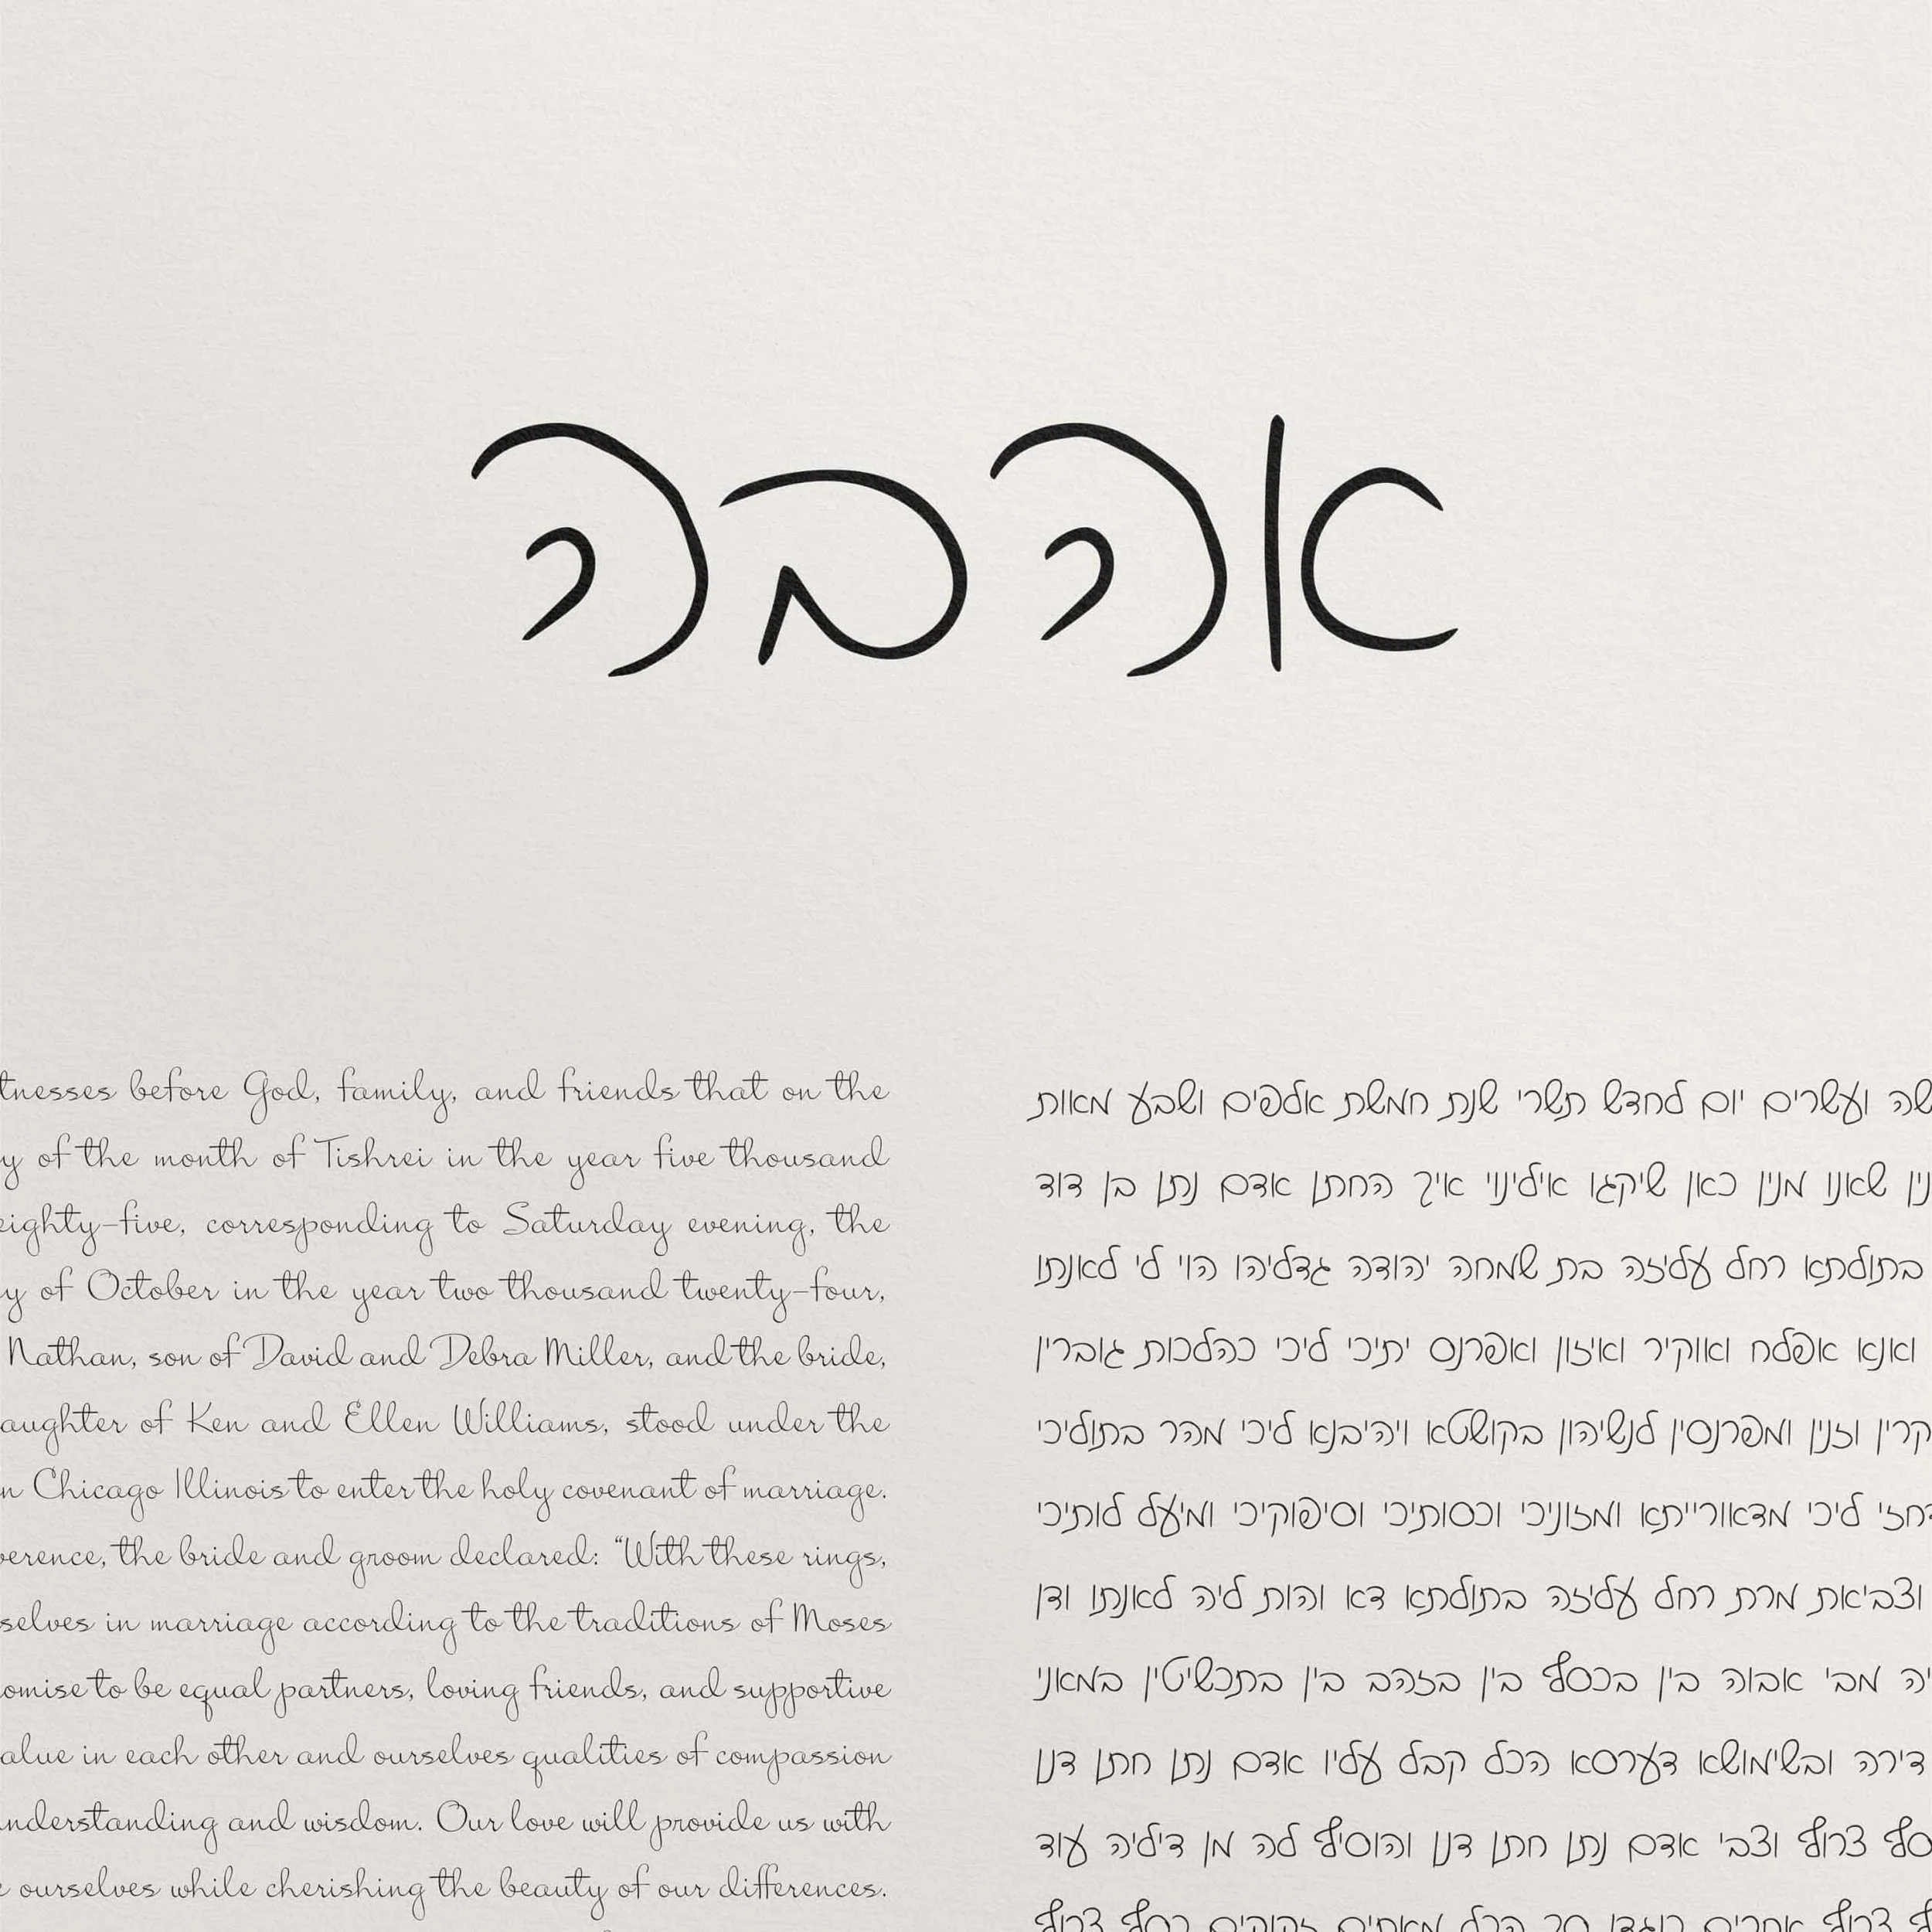 אהבה
tnesses before God, family, and friends that on the
y of the month of Tishrei in the year five thousand
eighty-five, corresponding to Saturday evening, the
y of October in the year two thousand twenty-four,
Nathan, son of David and Debra Miller, and the bride,
aughter of Ken and Ellen Williams, stood under the
n Chicago Illinois to enter the holy covenant of marriage.
verence, the bride and groom declared: “With these rings,
selves in marriage according to the traditions of Moses
omise to be equal partners, loving friends, and supportive
alue in each other and ourselves qualities of compassion
understanding and wisdom. Our love will provide us with
ourselves while cherishing the beauty of our differences.
שה ועשרים יום לחדש תשרי שנת חמשת אלפים ושבע מאות
נין שאנו מנין כאן שיקגו אילינוי איך החתן אדם נתן בן דוד
בתולתא רחל עליזה בת שמחה יהודה גדליהו הוי לי לאנתו
ואנא אפלח ואוקיר ואיזון ואפרנס יתיכי ליכי כהלכות גוברין
קרין וזנין ומפרנסין לנשיהון בקושטא ויהיבנא ליכי מהר בתוליכי
דחזי ליכי מדאורייתא ומזוניכי וכסותיכי וסיפוקיכי ומיעל לותיכי
וצביאת מרת רחל עליזה בתולתא דא והות ליה לאנתו ודן
יה מבי אבוה בין בכסף בין בזהב בין בתכשיטין במאני
דירה ובשימושא דערסא הכל קבל עליו אדם נתן חתן דנן
סף צרוף וצבי אדם נתן חתן דנן והוסיף לה מן דיליה עוד
צרוף אחרים כנגדן סך הכל מאתים זקוקים כסף צרוף